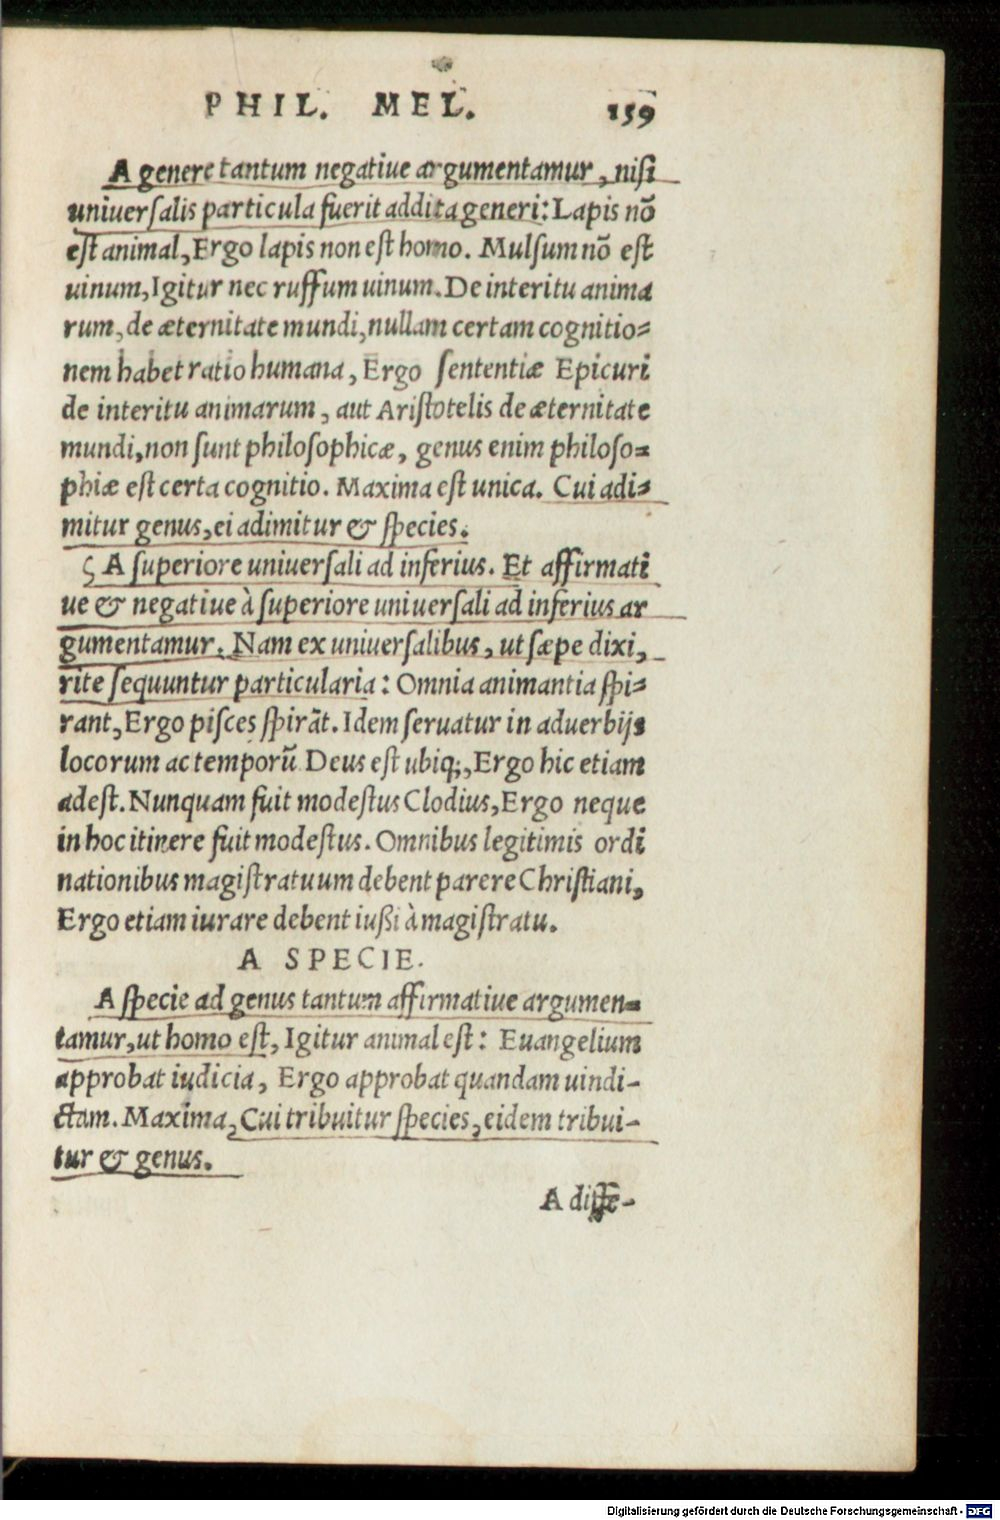 PHIL. MEL. 159
A genere tantum negatiue argumentamur, nisi
uniuersalis particula fuerit addita generi: Lapis nõ
est animal, Ergo lapis non est homo. Mulsum nõ est
uinum, Igitur nec ruffum uinum. De interitu anima
rum, de æternitate mundi, nullam certam cognitio=
nem habet ratio humana, Ergo sententiæ Epicuri
de interitu animarum, aut Aristotelis de æternitate
mundi, non sunt philosophicæ, genus enim philoso=
phiæ est certa cognitio. Maxima est unica. Cui adi=
mitur genus, ei adimitur & species.
A superiore uniuersali ad inferius. Et affirmati
ue & negatiue à superiore uniuersali ad inferius ar
gumentamur. Nam ex uniuersalibus, ut sæpe dixi,
rite sequuntur particularia: Omnia animantia spi=
rant, Ergo pisces spirãt. Idem seruatur in aduerbijs
locorum ac temporũ Deus est ubiq;, Ergo hic etiam
adest. Nunquam fuit modestus Clodius, Ergo neque
in hoc itinere fuit modestus. Omnibus legitimis ordi
nationibus magistratuum debent parere Christiani,
Ergo etiam iurare debent iußi à magistratu.
A SPECIE.
A specie ad genus tantum affirmatiue argumen=
tamur, ut homo est, Igitur animal est: Euangelium
approbat iudicia, Ergo approbat quandam uindi-
ctam. Maxima, Cui tribuitur species, eidem tribui-
tur & genus.
A diffe-
Digitalisierung gefördert durch die Deutsche Forschungsgemeinschaft - DFG